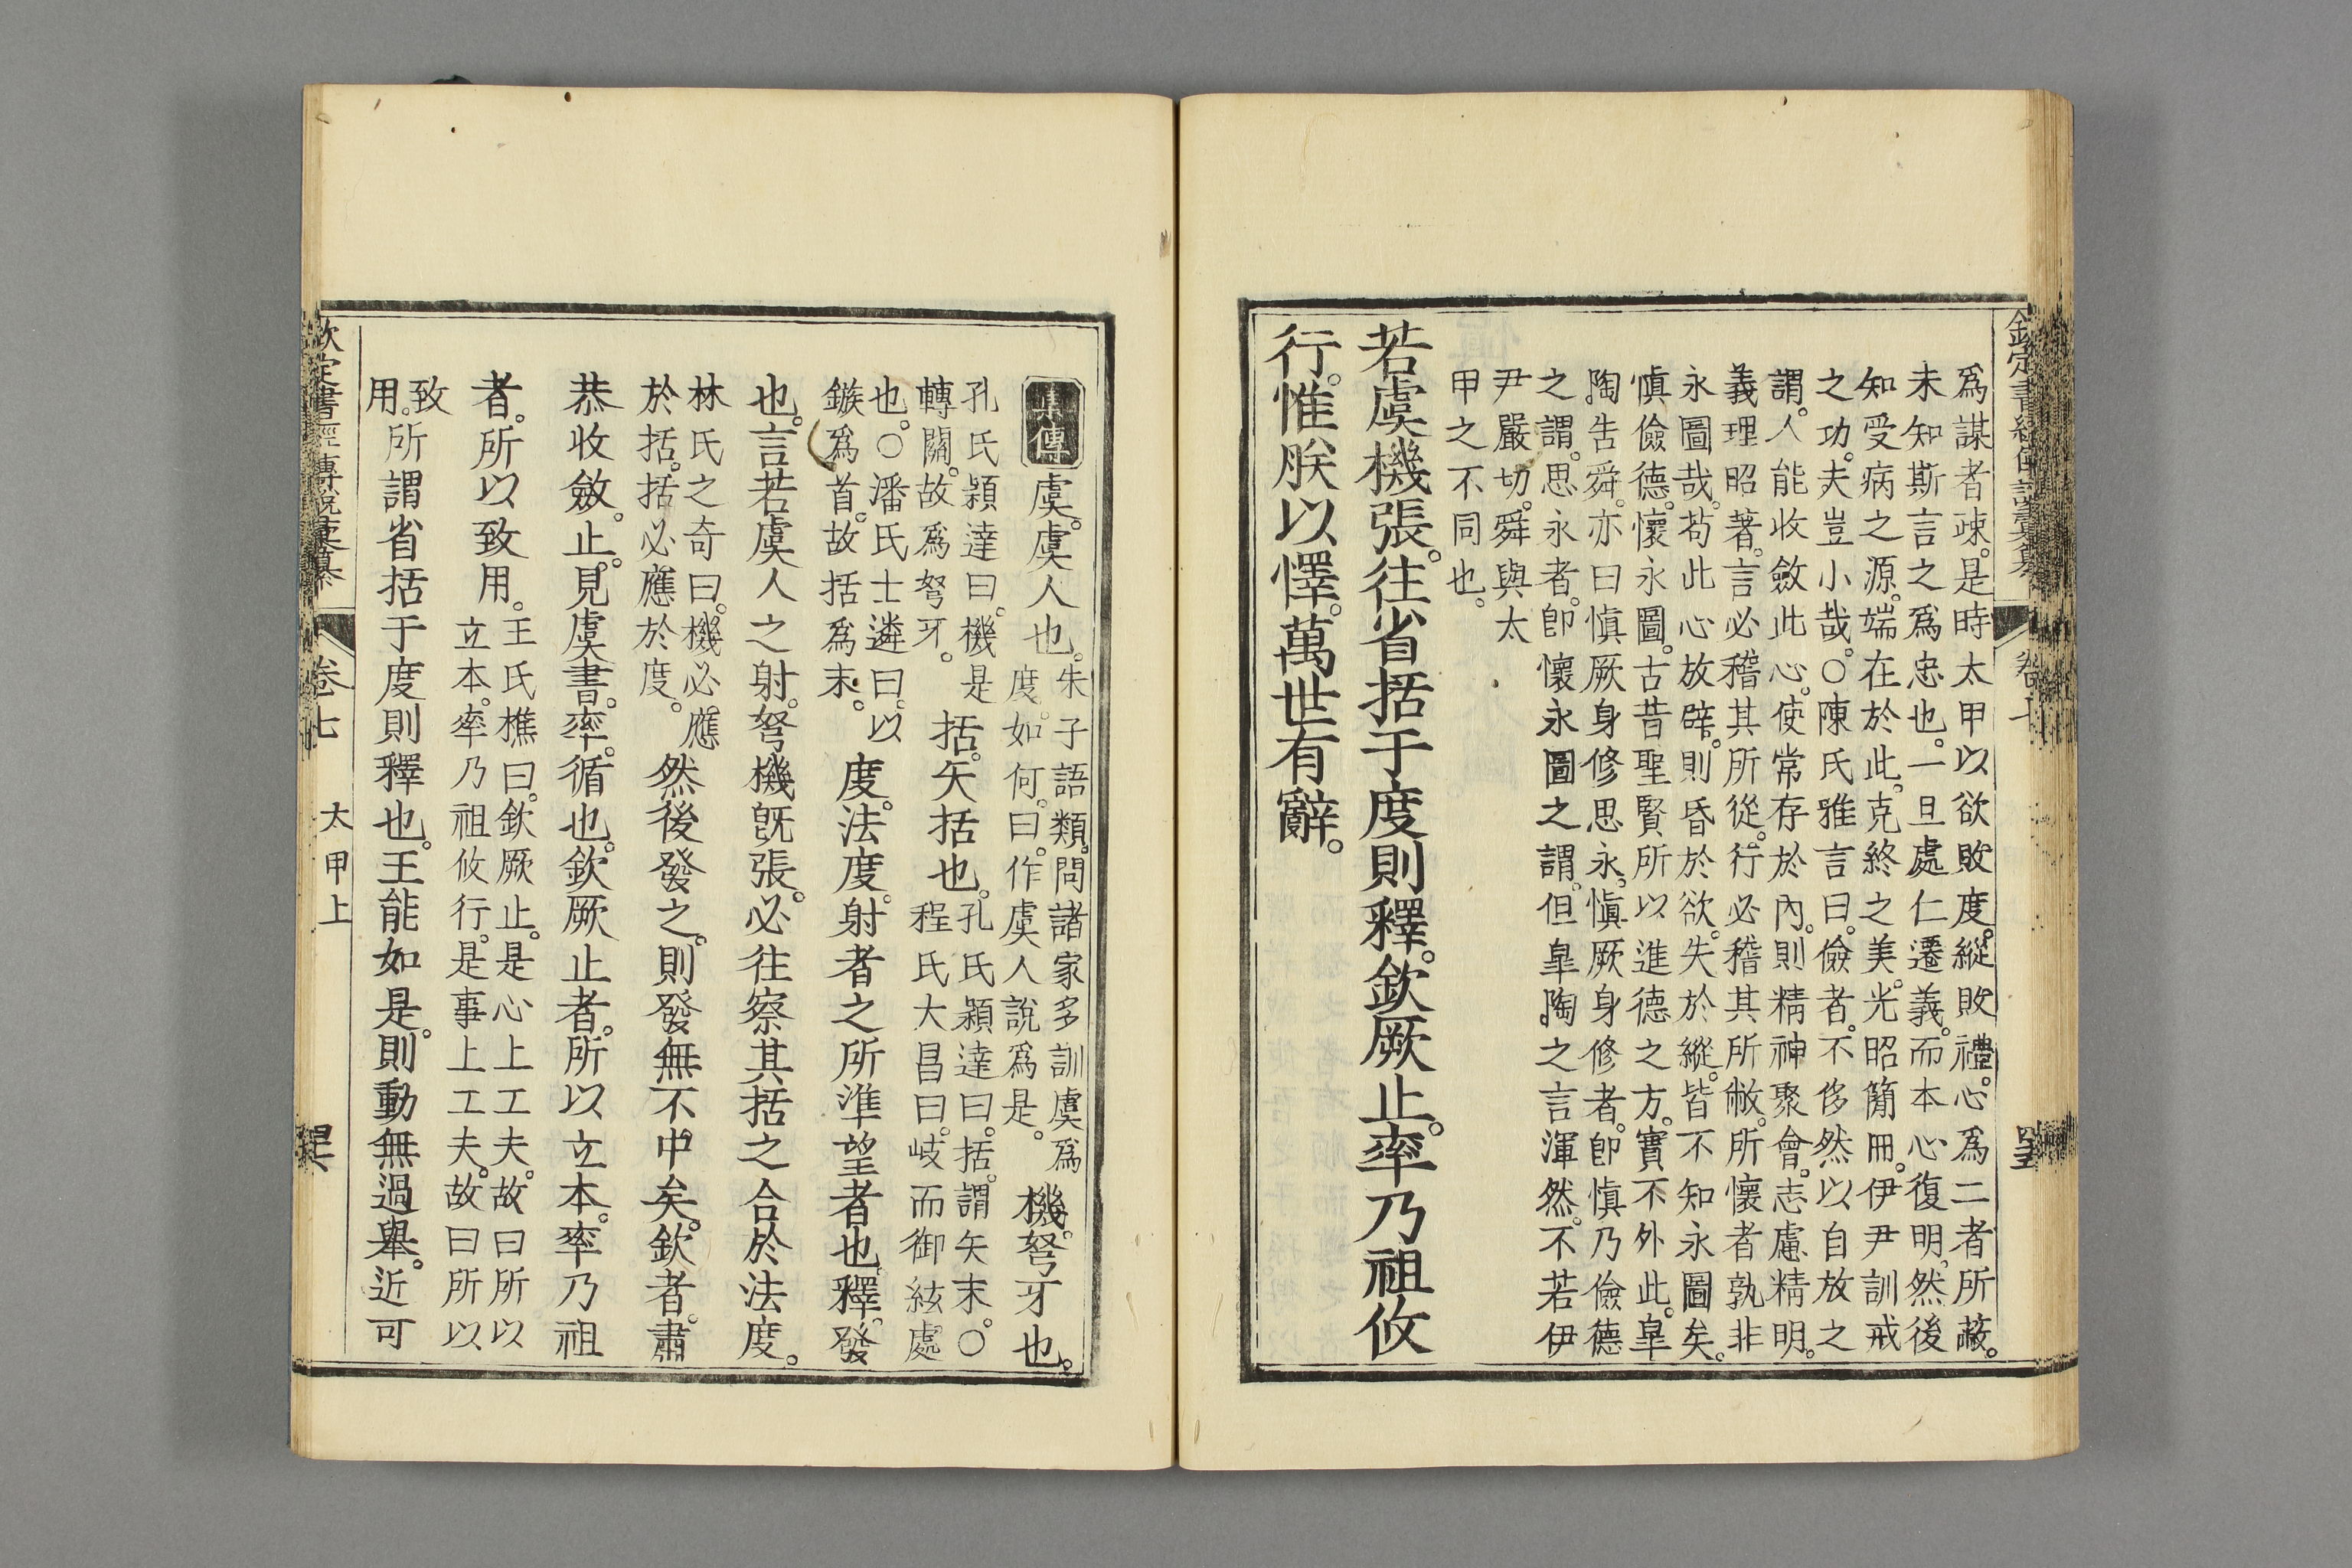 爲謀者疎。是時太甲以欲敗度。縱敗禮。心爲二者所蔽。
未知斯言之爲忠也。一旦處仁遷義。而本心復明。然後
知受病之源。端在於此。克終之美。光昭簡冊。伊尹訓戒
之功。夫豈小哉。○陳氏雅言曰。儉者。不侈然以自放之
謂。人能收斂此心。使常存於內。則精神聚會。志慮精明。
義理昭著。言必稽其所從。行必稽其所敝。所懷者孰非
永圖哉。苟此心放辟。則昏於欲。失於縱。皆不知永圖矣。
愼儉德。懷永圖。古昔聖賢所以進德之方。實不外此。臯
陶告舜。亦曰愼厥身修思永。愼厥身修者。卽愼乃儉德
之謂。思永者。卽懷永圖之謂。但臯陶之言渾然。不若伊
尹嚴切。舜與太
甲之不同也。
若虞機張。往省括于度則釋。欽厥止。率乃祖攸
行。惟朕以懌。萬世有辭。
集傳
虞。虞人也。
朱子語類。問諸家多訓虞爲
度。如何。曰。作虞人說爲是。
機。弩牙也。
孔氏穎達曰。機是
轉關。故爲弩牙。
括。矢括也。
孔氏穎達曰。括。謂矢末。○
程氏大昌曰。岐而御絃處
也。○潘氏士遴曰。以
鏃爲首。故括爲末。
度。法度。射者之所準望者也。釋。發
也。言若虞人之射。弩機旣張。必往察其括之合於法度。
林氏之奇曰。機必。應
於括。括必應於度。
然後發之。則發無不中矣。欽者。肅
恭收斂。止。見虞書。率。循也。欽厥止者。所以立本。率乃祖
者。所以致用。
王氏樵曰。欽厥止。是心上工夫。故曰所以
立本。率乃祖攸行。是事上工夫。故曰所以
致
用。
所謂省括于度則釋也。王能如是。則動無過舉。近可
欽定書經傳說彙纂
卷七
太甲上